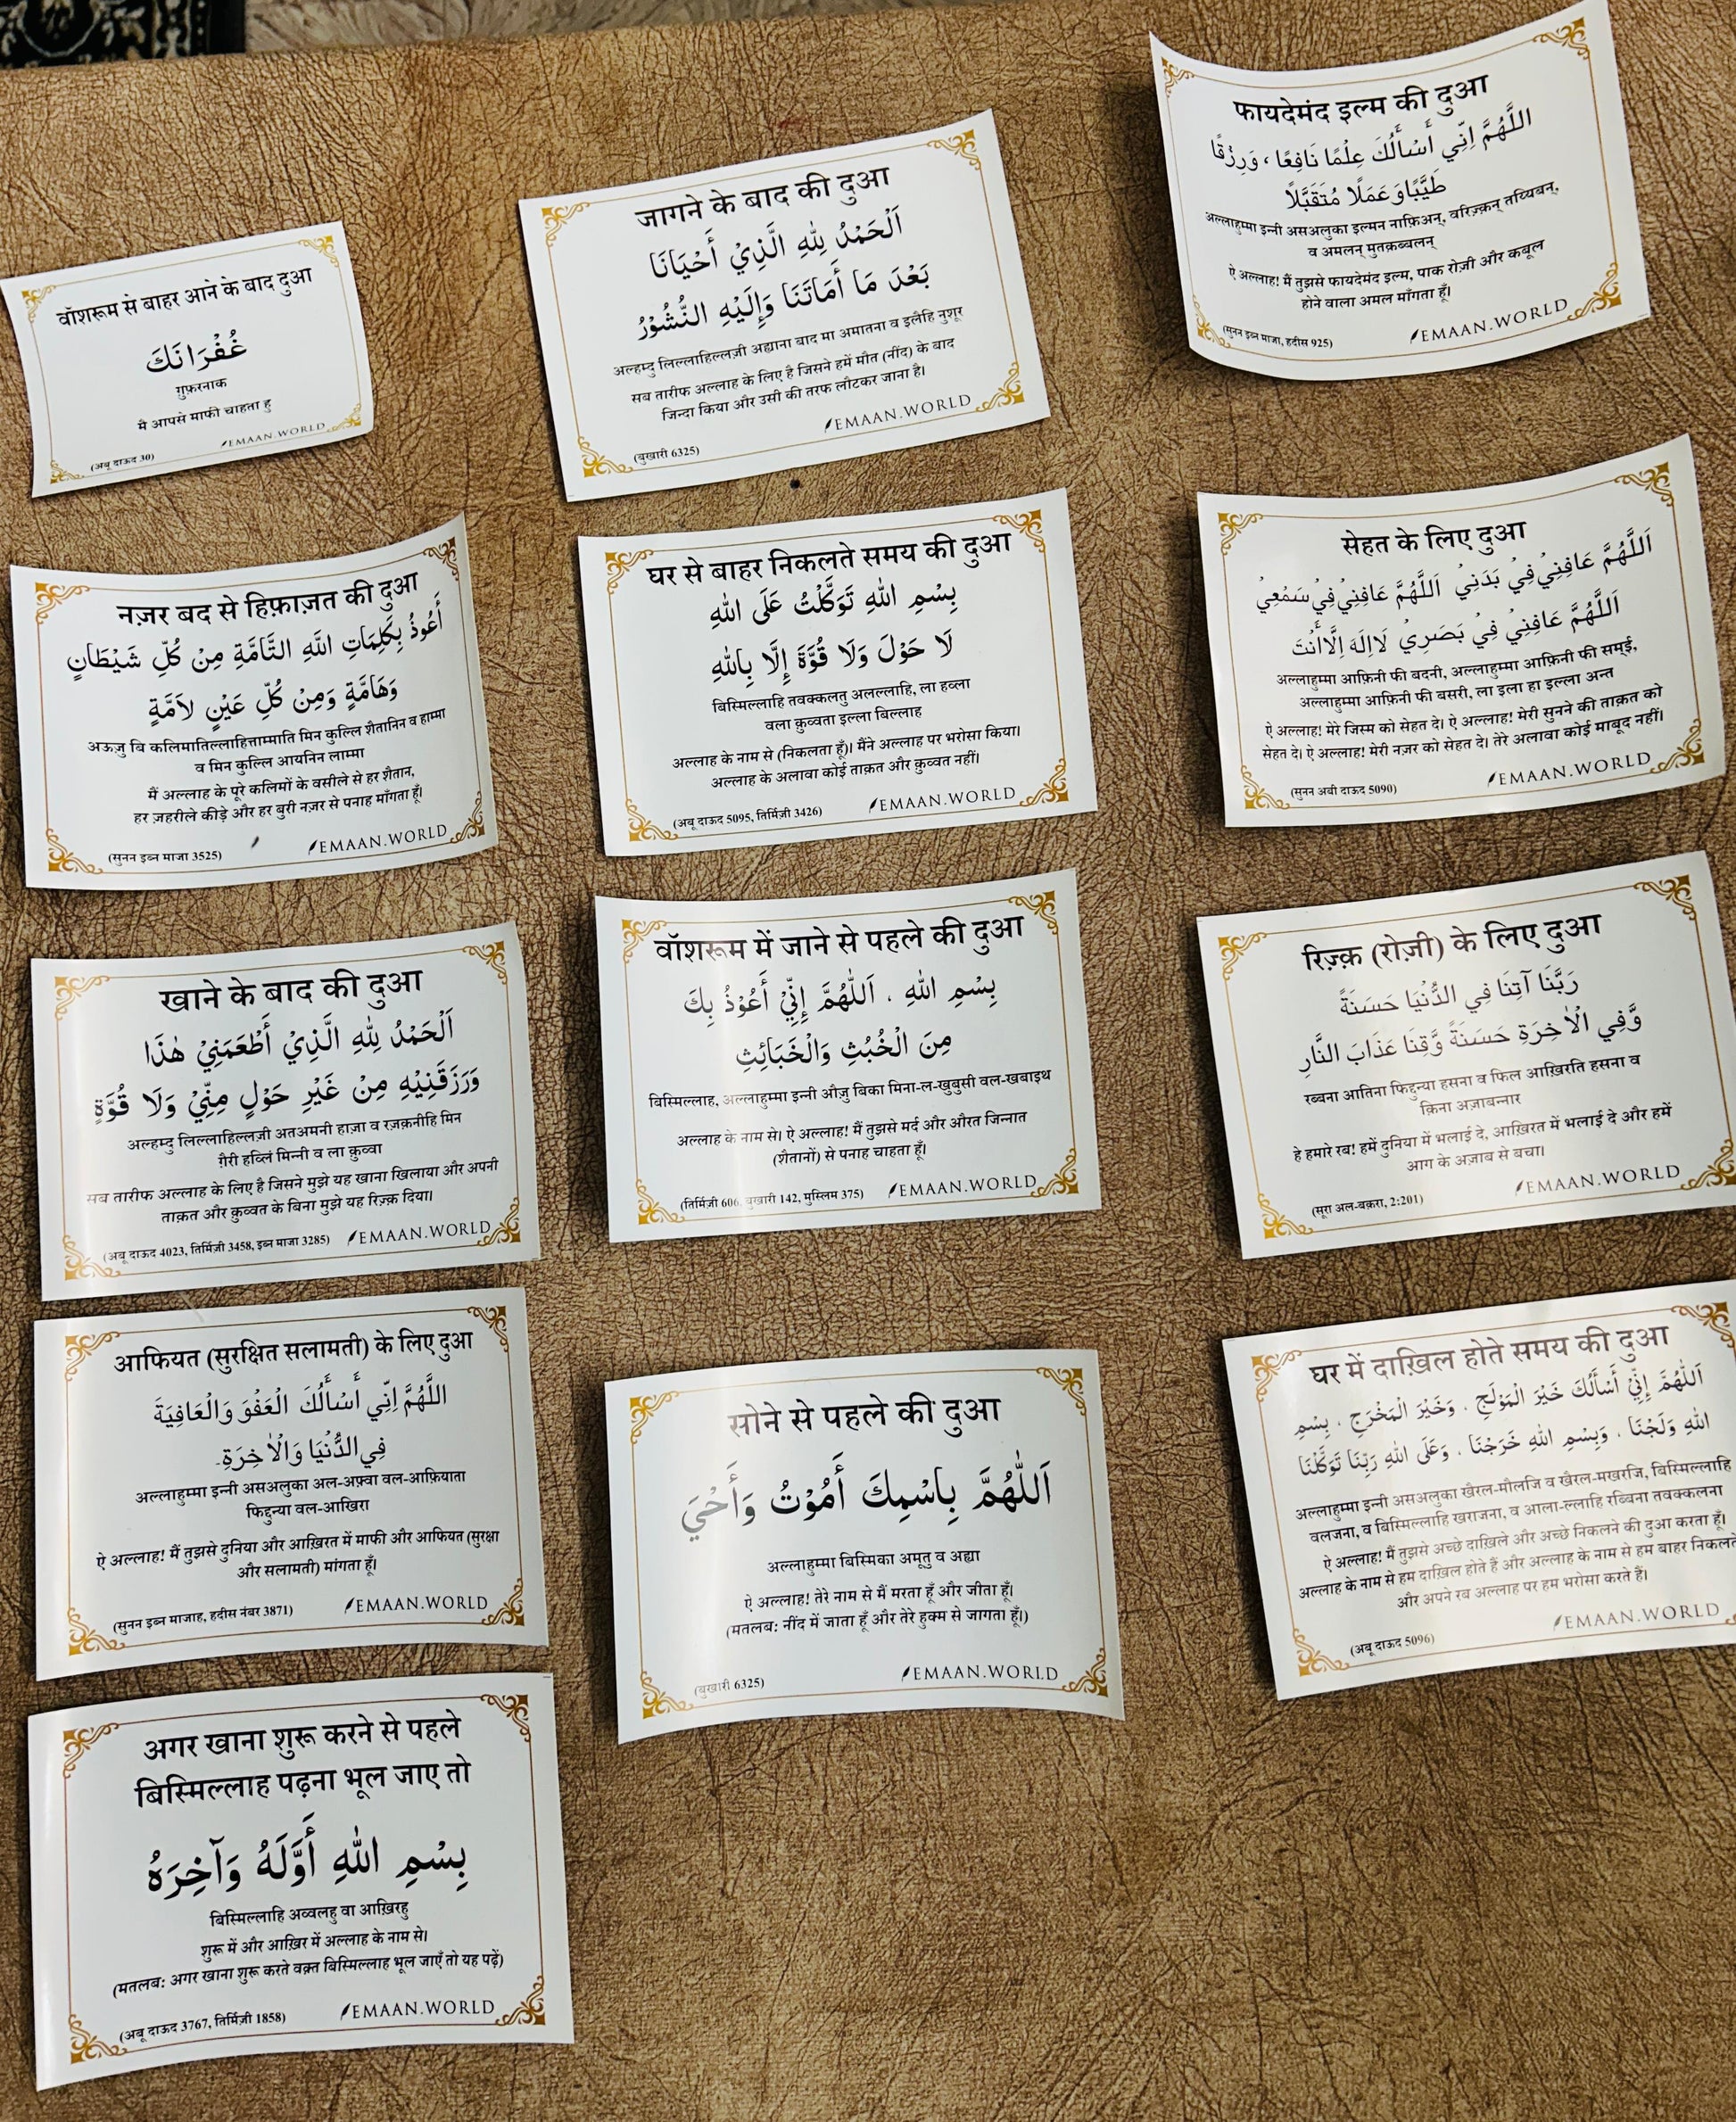 वॉशरूम से बाहर आने के बाद दुआ
غُفْرَانَكَ
गुफ़रनाक
मै आपसे माफी चाहता हु
EMAAN.WORLD
(अबू दाऊद 30)
जागने के बाद की दुआ
اَلْحَمْدُ لِلّٰهِ الَّذِيْ أَحْيَانَا
بَعْدَ مَا أَمَاتَنَا وَإِلَيْهِ النُّشُوْرُ
अल्हम्दु लिल्लाहिल्लज़ी अह्याना बाद मा अमातना व इलैहि नुशूर
सब तारीफ अल्लाह के लिए है जिसने हमें मौत (नींद) के बाद
जिन्दा किया और उसी की तरफ लौटकर जाना है।
EMAAN.WORLD
(बुखारी 6325)
फायदेमंद इल्म की दुआ
اللَّهُمَّ اِنِّي أَسْأَلُكَ عِلْمًا نَافِعًا ، وَرِزْقًا
طَيِّبًا وَعَمَلًا مُتَقَبَّلًا
अल्लाहुम्मा इन्नी असअलुका इल्मन नाफ़िअन्, वरिज़्क़न् तय्यिबन्,
व अमलन् मुतक़ब्बलन्
ऐ अल्लाह! मैं तुझसे फायदेमंद इल्म, पाक रोज़ी और कबूल
होने वाला अमल माँगता हूँ।
(सुनन इब्न माजा, हदीस 925)
EMAAN.WORLD
नज़र बद से हिफ़ाज़त की दुआ
أَعُوذُ بِكَلِمَاتِ اللَّهِ التَّامَّةِ مِنْ كُلِّ شَيْطَانٍ
وَهَامَّةٍ وَمِنْ كُلِّ عَيْنٍ لاَمَّةٍ
अऊज़ु बि कलिमातिल्लाहित्ताम्माति मिन कुल्लि शैतानिन व हाम्मा
व मिन कुल्लि आयनिन लाम्मा
मैं अल्लाह के पूरे कलिमों के वसीले से हर शैतान,
हर ज़हरीले कीड़े और हर बुरी नज़र से पनाह माँगता हूँ।
(सुनन इब्न माजा 3525)
EMAAN.WORLD
घर से बाहर निकलते समय की दुआ
بِسْمِ اللهِ تَوَكَّلْتُ عَلَى اللهِ
لَا حَوْلَ وَلَا قُوَّةَ إِلَّا بِاللهِ
बिस्मिल्लाहि तवक्कलतु अलल्लाहि, ला हव्ला
वला क़ुव्वता इल्ला बिल्लाह
अल्लाह के नाम से (निकलता हूँ)। मैंने अल्लाह पर भरोसा किया।
अल्लाह के अलावा कोई ताक़त और क़ुव्वत नहीं।
(अबू दाऊद 5095, तिर्मिज़ी 3426)
EMAAN.WORLD
सेहत के लिए दुआ
اَللَّهُمَّ عَافِنِيْ فِيْ بَدَنِيْ اَللَّهُمَّ عَافِنِيْ فِيْ سَمْعِيْ
اَللَّهُمَّ عَافِنِيْ فِيْ بَصَرِيْ لَا اِلٰهَ اِلَّا أَنْتَ
अल्लाहुम्मा आफ़िनी फी बदनी, अल्लाहुम्मा आफ़िनी फी समई,
अल्लाहुम्मा आफ़िनी फी बसरी, ला इला हा इल्ला अन्त
ऐ अल्लाह! मेरे जिस्म को सेहत दे। ऐ अल्लाह! मेरी सुनने की ताक़त को
सेहत दे। ऐ अल्लाह! मेरी नज़र को सेहत दे। तेरे अलावा कोई माबूद नहीं।
(सुनन अबी दाऊद 5090)
EMAAN.WORLD
खाने के बाद की दुआ
اَلْحَمْدُ لِلّٰهِ الَّذِيْ أَطْعَمَنِيْ هٰذَا
وَرَزَقَنِيْهِ مِنْ غَيْرِ حَوْلٍ مِنِّيْ وَلَا قُوَّةٍ
अल्हम्दु लिल्लाहिल्लज़ी अतअमनी हाज़ा व रज़क़नीहि मिन
ग़ैरी हव्लिं मिन्नी व ला क़ुव्वा
सब तारीफ अल्लाह के लिए है जिसने मुझे यह खाना खिलाया और अपनी
ताक़त और क़ुव्वत के बिना मुझे यह रिज़्क़ दिया।
(अबू दाऊद 4023, तिर्मिज़ी 3458, इब्न माजा 3285)
EMAAN.WORLD
वॉशरूम में जाने से पहले की दुआ
بِسْمِ اللهِ ، اَللّٰهُمَّ إِنِّيْ أَعُوْذُ بِكَ
مِنَ الْخُبُثِ وَالْخَبَائِثِ
बिस्मिल्लाह, अल्लाहुम्मा इन्नी औज़ु बिका मिना-ल-खुबुसी वल-खबाइथ
अल्लाह के नाम से। ऐ अल्लाह! मैं तुझसे मर्द और औरत जिन्नात
(शैतानों) से पनाह चाहता हूँ।
(तिर्मिज़ी 606, बुखारी 142, मुस्लिम 375)
EMAAN.WORLD
रिज़्क़ (रोज़ी) के लिए दुआ
رَبَّنَا آتِنَا فِي الدُّنْيَا حَسَنَةً
وَّفِي الْاٰخِرَةِ حَسَنَةً وَّقِنَا عَذَابَ النَّارِ
रब्बना आतिना फिद्दुन्या हसना व फिल आख़िरति हसना व
क़िना अज़ाबन्नार
हे हमारे रब! हमें दुनिया में भलाई दे, आख़िरत में भलाई दे और हमें
आग के अज़ाब से बचा।
(सूरा अल-बक़रा, 2:201)
EMAAN.WORLD
आफियत (सुरक्षित सलामती) के लिए दुआ
اللَّهُمَّ اِنِّي أَسْأَلُكَ الْعَفْوَ وَالْعَافِيَةَ
فِي الدُّنْيَا وَالْاٰخِرَةِ.
अल्लाहुम्मा इन्नी असअलुका अल-अफ़्वा वल-आफ़ियाता
फिद्दुन्या वल-आखिरा
ऐ अल्लाह! मैं तुझसे दुनिया और आख़िरत में माफी और आफियत (सुरक्षा
और सलामती) मांगता हूँ।
(सुनन इब्न माजाह, हदीस नंबर 3871)
EMAAN.WORLD
सोने से पहले की दुआ
اَللّٰهُمَّ بِاسْمِكَ أَمُوْتُ وَأَحْيَ
अल्लाहुम्मा बिस्मिका अमूतु व अह्या
ऐ अल्लाह! तेरे नाम से मैं मरता हूँ और जीता हूँ।
(मतलब: नींद में जाता हूँ और तेरे हुक्म से जागता हूँ।)
(बुखारी 6325)
EMAAN.WORLD
घर में दाख़िल होते समय की दुआ
اَللّٰهُمَّ إِنِّيْ أَسْأَلُكَ خَيْرَ الْمَوْلَجِ ، وَخَيْرَ الْمَخْرَجِ ، بِسْمِ
اللهِ وَلَجْنَا ، وَبِسْمِ اللهِ خَرَجْنَا ، وَعَلَى اللهِ رَبِّنَا تَوَكَّلْنَا
अल्लाहुम्मा इन्नी असअलुका खैरल-मौलजि व खैरल-मखरजि, बिस्मिल्लाहि
वलजना, व बिस्मिल्लाहि खराजना, व आला-ल्लाहि रब्बिना तवक्कलना
ऐ अल्लाह! मैं तुझसे अच्छे दाख़िले और अच्छे निकलने की दुआ करता हूँ।
अल्लाह के नाम से हम दाख़िल होते हैं और अल्लाह के नाम से हम बाहर निकलते
और अपने रब अल्लाह पर हम भरोसा करते हैं।
(अबू दाऊद 5096)
EMAAN.WORLD
अगर खाना शुरू करने से पहले
बिस्मिल्लाह पढ़ना भूल जाए तो
بِسْمِ اللهِ أَوَّلَهُ وَآخِرَهُ
बिस्मिल्लाहि अव्वलहु वा आख़िरहु
शुरू में और आख़िर में अल्लाह के नाम से।
(मतलब: अगर खाना शुरू करते वक़्त बिस्मिल्लाह भूल जाएँ तो यह पढ़ें)
(अबू दाऊद 3767, तिर्मिज़ी 1858)
EMAAN.WORLD